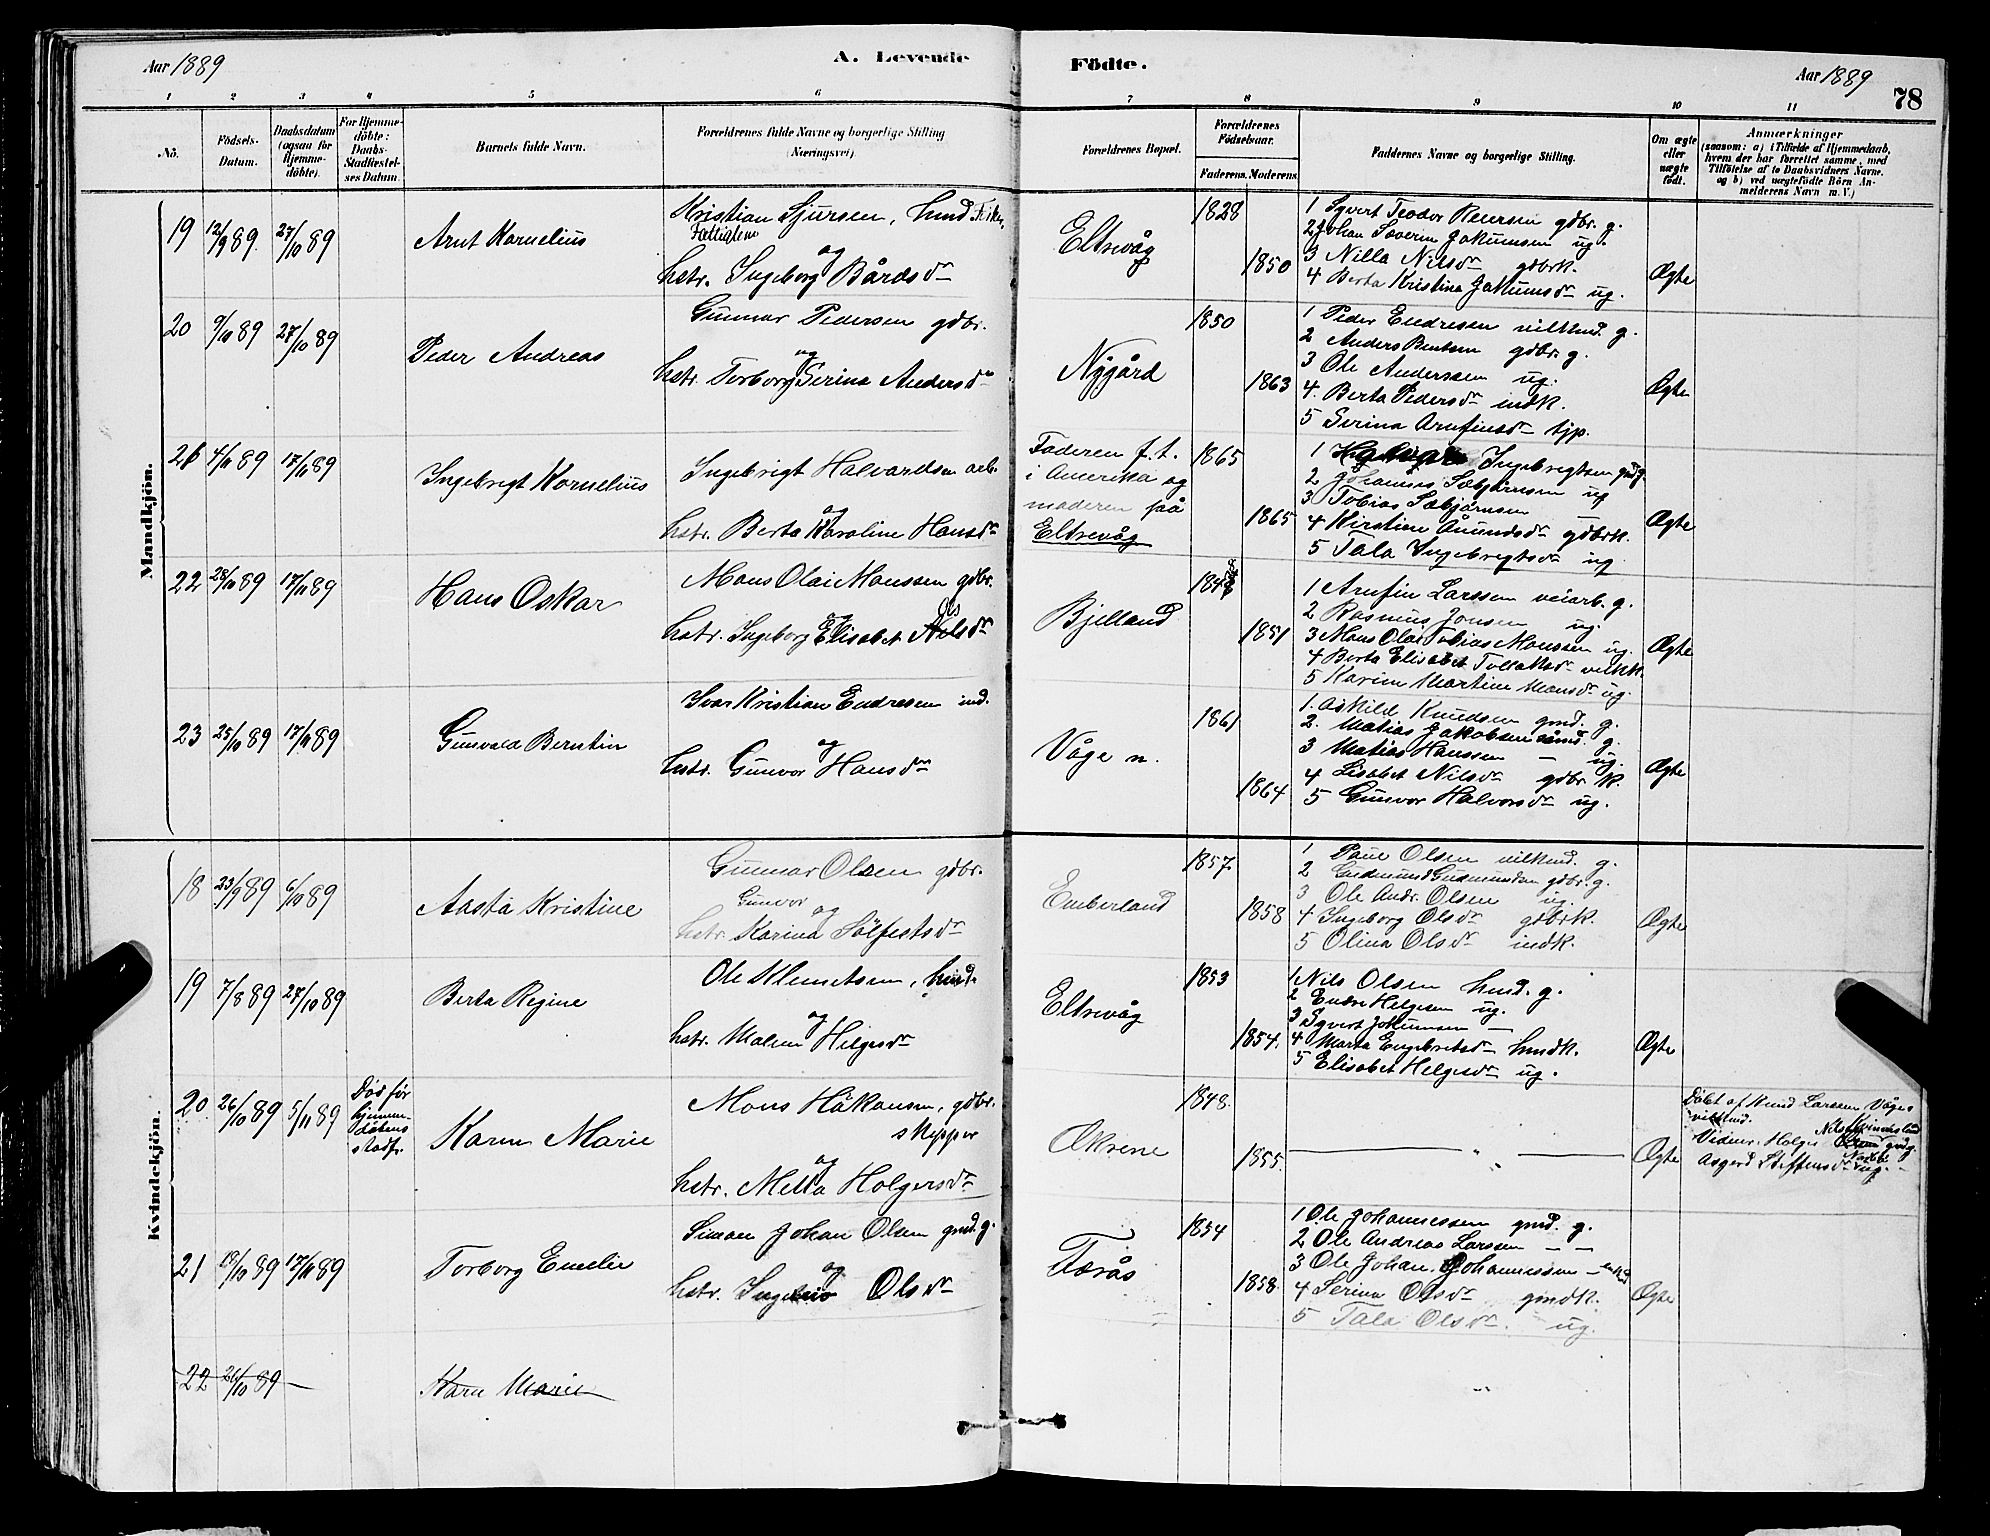 Aar 1889
A. Levende Födte.
Aar 1889
78
1 2 3 4 5 6 7 8 9 10 11
No.
Födsels-Datum.
Daabsdatum (ogsaa for Hjemme-döbte).
For Hjemme-döbte: Daabs-Stadfæstel-ses Datum.
Barnets fulde Navn.
Forældrenes fulde Navne og borgerlige Stilling (Næringsvei).
Forældrenes Bopæl.
Forældrenes Födselsaar.
Faderens. Moderens.
Faddernes Navne og borgerlige Stilling.
Om ægte eller uægte födt.
Anmærkninger
(saasom: a) i Tilfælde af Hjemmedaab, hvem der har forrettet samme, med Tilföielse af to Daabsvidners Navne, og b) ved uægtefödte Börn An-melderens Navn m. V.)
Mandkjön.
19 12/9 89. 27/10 89
Arnt Kornelius
Kristian Sjursen, husd
Fattiglem
og
hstr. Ingeborg Bårdsdr
Eltrevåg
1828
1850
1 Syvert Teodor Reiersen gdbr. g.
2 Johan Severin Jokumsen ug.
3 Nilla Nilsdr gdbrk.
4 Berta Kristina Jokumsdr ug.
Ægte
20 9/10 89 27/10 89
Peder Andreas
Gunnar Pedersen gdbr.
og
hstr. Torborg Serina Andersdr
Nygård
1850
1863
1 Peder Endresen vilkmd. g.
2 Anders Bentsen gdbr. g.
3 Ole Anderssen ug.
4. Berta Pedersdr indk.
5 Serina Arnfinsdr tjp.
Ægte
21 4/11 89 17/11 89
Ingebrigt Kornelius
Ingebrigt Halvardsen arb.
og
hstr. Berta Karoline Hansdr
Faderen f. t.
i Amerika og
moderen på
Eltrevåg
1865
1865
1 Ingebrigtsen gmd g.
2 Johannes Sæbjørnsen ug
3 Tobias Sæbjørnsen
4 Kirstine Åmundsdr gdbrk.
5 Tala Ingebrigtsdr ug.
Ægte
22 28/10 89 17/11 89
Hans Oskar
Mons Olai Monssen gdbr.
og Ols
hstr. Ingeborg Elisabet Nilsdr
Bjelland
1851
1 Arnfin Larssen veiarb. g.
2 Rasmus Jonsen ug.
3 Mons Olai Tobias Monssen ug.
4 Berta Elisabet Tollaksdr vilkk.
5 Karine Martine Monsdr ug.
Ægte
23 25/10 89 17/11 89
Gunvald Berntin
Ivar Kristian Endresen ind.
og
hstr. Gunvor Hansdr
Våge n.
1861
1864
1. Askild Knudsen gmd. g.
2. Matias Jakobsen g.
3 Matias Hanssen – ug.
4 Lisabet Nilsdr gdbr. k.
5 Gunvor Halvorsdr ug.
Ægte
Kvindekjön.
18 23/9 89 6/10 89
Aasta Kristine
Gunnar Olsen gdbr.
Gunvor og
hstr. Karina Sölfestsdr
Emberland
1857.
1858
1 Paul Olsen vilkmd. g.
2 Gudmund Gudmundsen gdbr. g.
3 Ole Andr. Olsen ug.
4 Ingeborg Olsdr gdbrk.
5 Olina Olsdr indk.
Ægte
19 7/8 89 27/10 89
Berta Regine
Ole Klemetsen, husd.
og
hstr. Malene Helgesdr
Eltrevåg
1853
1854.
1 Nils Olsen husd. g.
2 Endre Helgesen ug.
3 Syvert Jokumsen –
4 Marta Engebretsdr husdk.
5 Elisabet Helgesdr ug.
Ægte
20 26/10 89 5/11 89
Död för
hjemme-
döbens
stadf.
Karen Marie
Mons Håkonsen, gdbr.
skipper
og
hstr. Metta Holgersdr
Økrene
1848.
1855.
– „ –
Ægte
Döbt af Knud Larssen Våge s
vilkmd.
Vidner. Holger gmd g.
Asgerd Steffensdr ug. –
21 19/10 89 17/11 89
Torborg Emelie
Simon Johan Olsen gmd. g.
og
hstr. Olsdr
Færås
1854
1858.
1 Ole Johannessen gmd. g.
2 Ole Andreas Larssen – –
3 Ole Johan. Johannessen –
4 Serina Olsdr gmdk.
5 Tala Olsdr. ug.
Ægte
22 26/10 89 –
Karen Marie
„